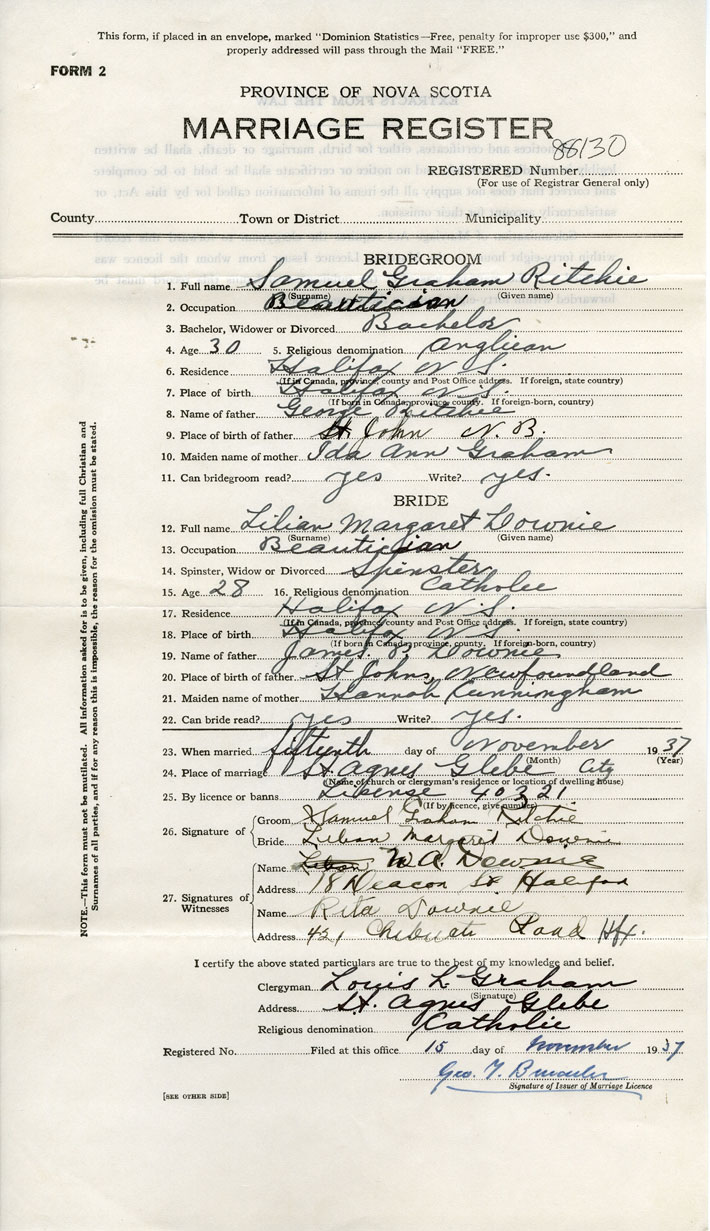 This form, if placed in an envelope, marked "Dominion Statistics—Free, penalty for improper use $300," and
properly addressed will pass through the Mail "FREE."
FORM 2
PROVINCE OF NOVA SCOTIA
MARRIAGE REGISTER
88130
REGISTERED Number
(For use of Registrar General only)
County Town or District Municipality
BRIDEGROOM
1. Full name Samuel Graham Ritchie
(Surname) (Given name)
2. Occupation Beautician
3. Bachelor, Widower or Divorced Bachelor
4. Age 30 5. Religious denomination Anglican
6. Residence Halifax N.S.
(If in Canada, province, county and Post Office address. If foreign, state country)
7. Place of birth Halifax N.S.
(If born in Canada, province, county. If foreign-born, country)
8. Name of father George Ritchie
9. Place of birth of father St John N. B.
10. Maiden name of mother Ida Ann Graham
11. Can bridegroom read? yes Write? yes.
BRIDE
12. Full name Lilian Margaret Downie
(Surname) (Given name)
13. Occupation Beautician
14. Spinster, Widow or Divorced Spinster
15. Age 28 16. Religious denomination Catholic
17. Residence Halifax N.S.
(If in Canada, province, county and Post Office address. If foreign, state country)
18. Place of birth Halifax N.S.
(If born in Canada, province, county. If foreign-born, country)
19. Name of father James B Downie
20. Place of birth of father St Johns, Newfoundland
21. Maiden name of mother Hannah Cunningham
22. Can bride read? yes Write? yes.
23. When married fifteenth day of November 1937
(Month) (Year)
24. Place of marriage St. Agnes Glebe City
(Name of church or clergyman's residence or location of dwelling house)
25. By licence or banns License 40321
(If by licence, give number)
26. Signature of
Groom Samuel Graham Ritchie
Bride Lilian Margaret Downie
27. Signatures of Witnesses
Name W A. Downie
Address 78 Deacon St Halifax
Name Rita Downie
Address 421 Chebucto Road Hfx.
I certify the above stated particulars are true to the best of my knowledge and belief.
Clergyman Louis L. Graham
(Signature)
Address St. Agnes Glebe
Religious denomination Catholic
Registered No. Filed at this office 15 day of November 1937
Geo. T.
Signature of Issuer of Marriage Licence
[SEE OTHER SIDE]
NOTE.—This form must not be mutilated. All information asked for is to be given, including full Christian and
Surnames of all parties, and if for any reason this is impossible, the reason for the omission must be stated.